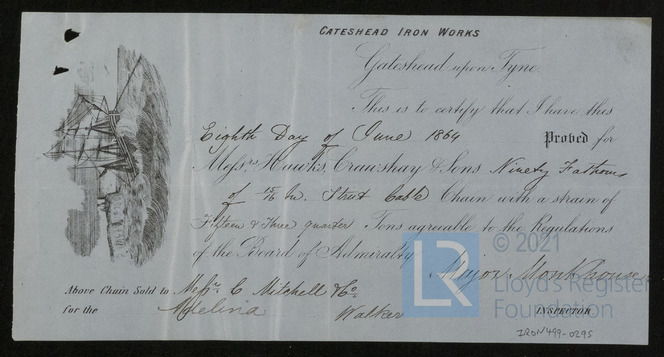 GATESHEAD IRON WORKS
Gateshead upon Tyne
This is to certify that I have this
Eighth Day of June 1864 Proved for
Messrs Hawks, Crawshay & Sons Ninety Fathoms
of In. Strut Cable Chain with a strain of
Fifteen & Three quarter Tons agreeable to the Regulations
of the Board of Admiralty
Major Monkhouse
Above Chain Sold to Messrs C Mitchell & Co
for the Walker INSPECTOR
LR
© 2021
Lloyd's Register
Foundation
IRON499-0295